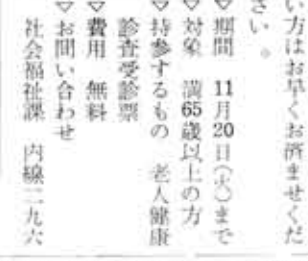 い方はお早くお済ませくだ
さい。
▽期間 11月20日(水)まで
▽対象 満65歳以上の方
▽持参するもの 老人健康
診査受診票
▽費用 無料
▽お問い合わせ
社会福祉課 内線二九六